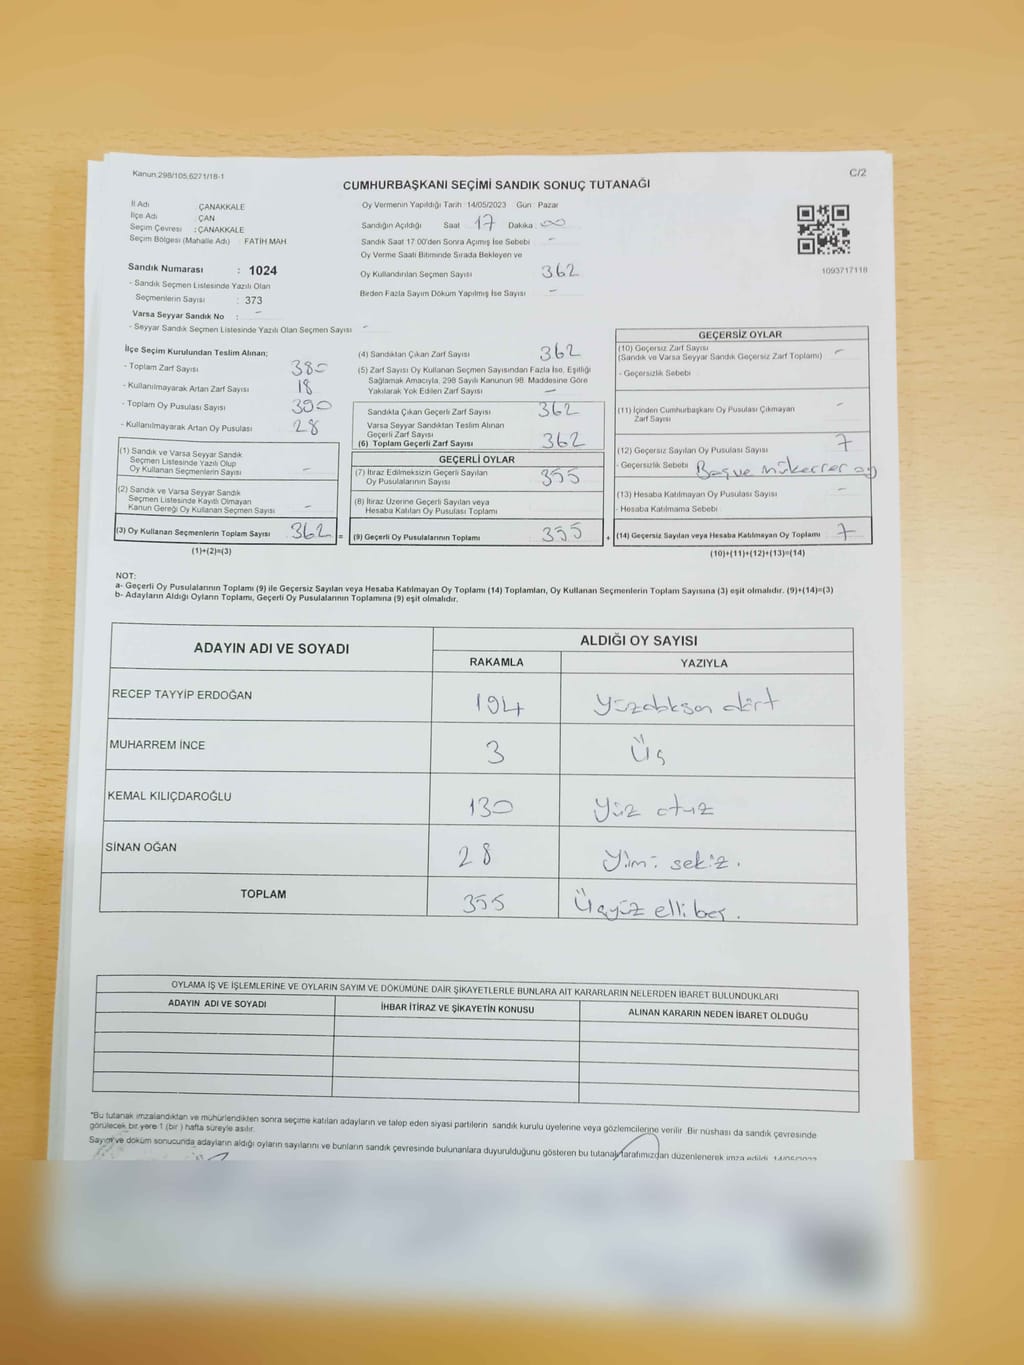 Kanun:298/105,6271/18-1
C/2
CUMHURBAŞKANI SEÇİMİ SANDIK SONUÇ TUTANAĞI
İl Adı : ÇANAKKALE
İlçe Adı : ÇAN
Seçim Çevresi : ÇANAKKALE
Seçim Bölgesi (Mahalle Adı) : FATİH MAH
Sandık Numarası : 1024
- Sandık Seçmen Listesinde Yazılı Olan
Seçmenlerin Sayısı : 373
Varsa Seyyar Sandık No : -
- Seyyar Sandık Seçmen Listesinde Yazılı Olan Seçmen Sayısı -
Oy Vermenin Yapıldığı Tarih : 14/05/2023 Gün : Pazar
Sandığın Açıldığı Saat 17 Dakika : 00
Sandık Saat 17:00'den Sonra Açımış İse Sebebi -
Oy Verme Saati Bitiminde Sırada Bekleyen ve
Oy Kullandırılan Seçmen Sayısı 362
Birden Fazla Sayım Döküm Yapılmış İse Sayısı -
1093717118
İlçe Seçim Kurulundan Teslim Alınan;
- Toplam Zarf Sayısı 380
- Kullanılmayarak Artan Zarf Sayısı 18
- Toplam Oy Pusulası Sayısı 390
- Kullanılmayarak Artan Oy Pusulası 28
(1) Sandık ve Varsa Seyyar Sandık
Seçmen Listesinde Yazılı Olup
Oy Kullanan Seçmenlerin Sayısı -
(2) Sandık ve Varsa Seyyar Sandık
Seçmen Listesinde Kayıtlı Olmayan
Kanun Gereği Oy Kullanan Seçmen Sayısı -
(3) Oy Kullanan Seçmenlerin Toplam Sayısı 362 =
(1)+(2)=(3)
(4) Sandıktan Çıkan Zarf Sayısı 362
(5) Zarf Sayısı Oy Kullanan Seçmen Sayısından Fazla İse, Eşitliği
Sağlamak Amacıyla, 298 Sayılı Kanunun 98. Maddesine Göre
Yakılarak Yok Edilen Zarf Sayısı -
Sandıkta Çıkan Geçerli Zarf Sayısı 362
Varsa Seyyar Sandıktan Teslim Alınan
Geçerli Zarf Sayısı
(6) Toplam Geçerli Zarf Sayısı 362
GEÇERLİ OYLAR
(7) İtiraz Edilmeksizin Geçerli Sayılan
Oy Pusulalarının Sayısı 355
(8) İtiraz Üzerine Geçerli Sayılan veya
Hesaba Katılan Oy Pusulası Toplamı
(9) Geçerli Oy Pusulalarının Toplamı 355 +
GEÇERSİZ OYLAR
(10) Geçersiz Zarf Sayısı
(Sandık ve Varsa Seyyar Sandık Geçersiz Zarf Toplamı) -
- Geçersizlik Sebebi
(11) İçinden Cumhurbaşkanı Oy Pusulası Çıkmayan
Zarf Sayısı -
(12) Geçersiz Sayılan Oy Pusulası Sayısı 7
- Geçersizlik Sebebi Boş ve mükerrer oy
(13) Hesaba Katılmayan Oy Pusulası Sayısı -
- Hesaba Katılmama Sebebi
(14) Geçersiz Sayılan veya Hesaba Katılmayan Oy Toplamı 7
(10)+(11)+(12)+(13)=(14)
NOT:
a- Geçerli Oy Pusulalarının Toplamı (9) ile Geçersiz Sayılan veya Hesaba Katılmayan Oy Toplamı (14) Toplamları, Oy Kullanan Seçmenlerin Toplam Sayısına (3) eşit olmalıdır. (9)+(14)=(3)
b- Adayların Aldığı Oyların Toplamı, Geçerli Oy Pusulalarının Toplamına (9) eşit olmalıdır.
ADAYIN ADI VE SOYADI ALDIĞI OY SAYISI
RAKAMLA YAZIYLA
RECEP TAYYİP ERDOĞAN 194 Yüzdoksan dört
MUHARREM İNCE 3 Üç
KEMAL KILIÇDAROĞLU 130 Yüz otuz
SİNAN OĞAN 28 Yimi sekiz.
TOPLAM 355 Üçyüz elli beş.
OYLAMA İŞ VE İŞLEMLERİNE VE OYLARIN SAYIM VE DÖKÜMÜNE DAİR ŞİKAYETLERLE BUNLARA AİT KARARLARIN NELERDEN İBARET BULUNDUKLARI
ADAYIN ADI VE SOYADI İHBAR İTİRAZ VE ŞİKAYETİN KONUSU ALINAN KARARIN NEDEN İBARET OLDUĞU
*Bu tutanak imzalandıktan ve mühürlendikten sonra seçime katılan adayların ve talep eden siyasi partilerin sandık kurulu üyelerine veya gözlemcilerine verilir. Bir nüshası da sandık çevresinde
görülecek bir yere 1 (bir ) hafta süreyle asılır.
Sayım ve döküm sonucunda adayların aldığı oyların sayılarını ve bunların sandık çevresinde bulunanlara duyurulduğunu gösteren bu tutanak tarafımızdan düzenlenerek imza edildi. 14/05/2023